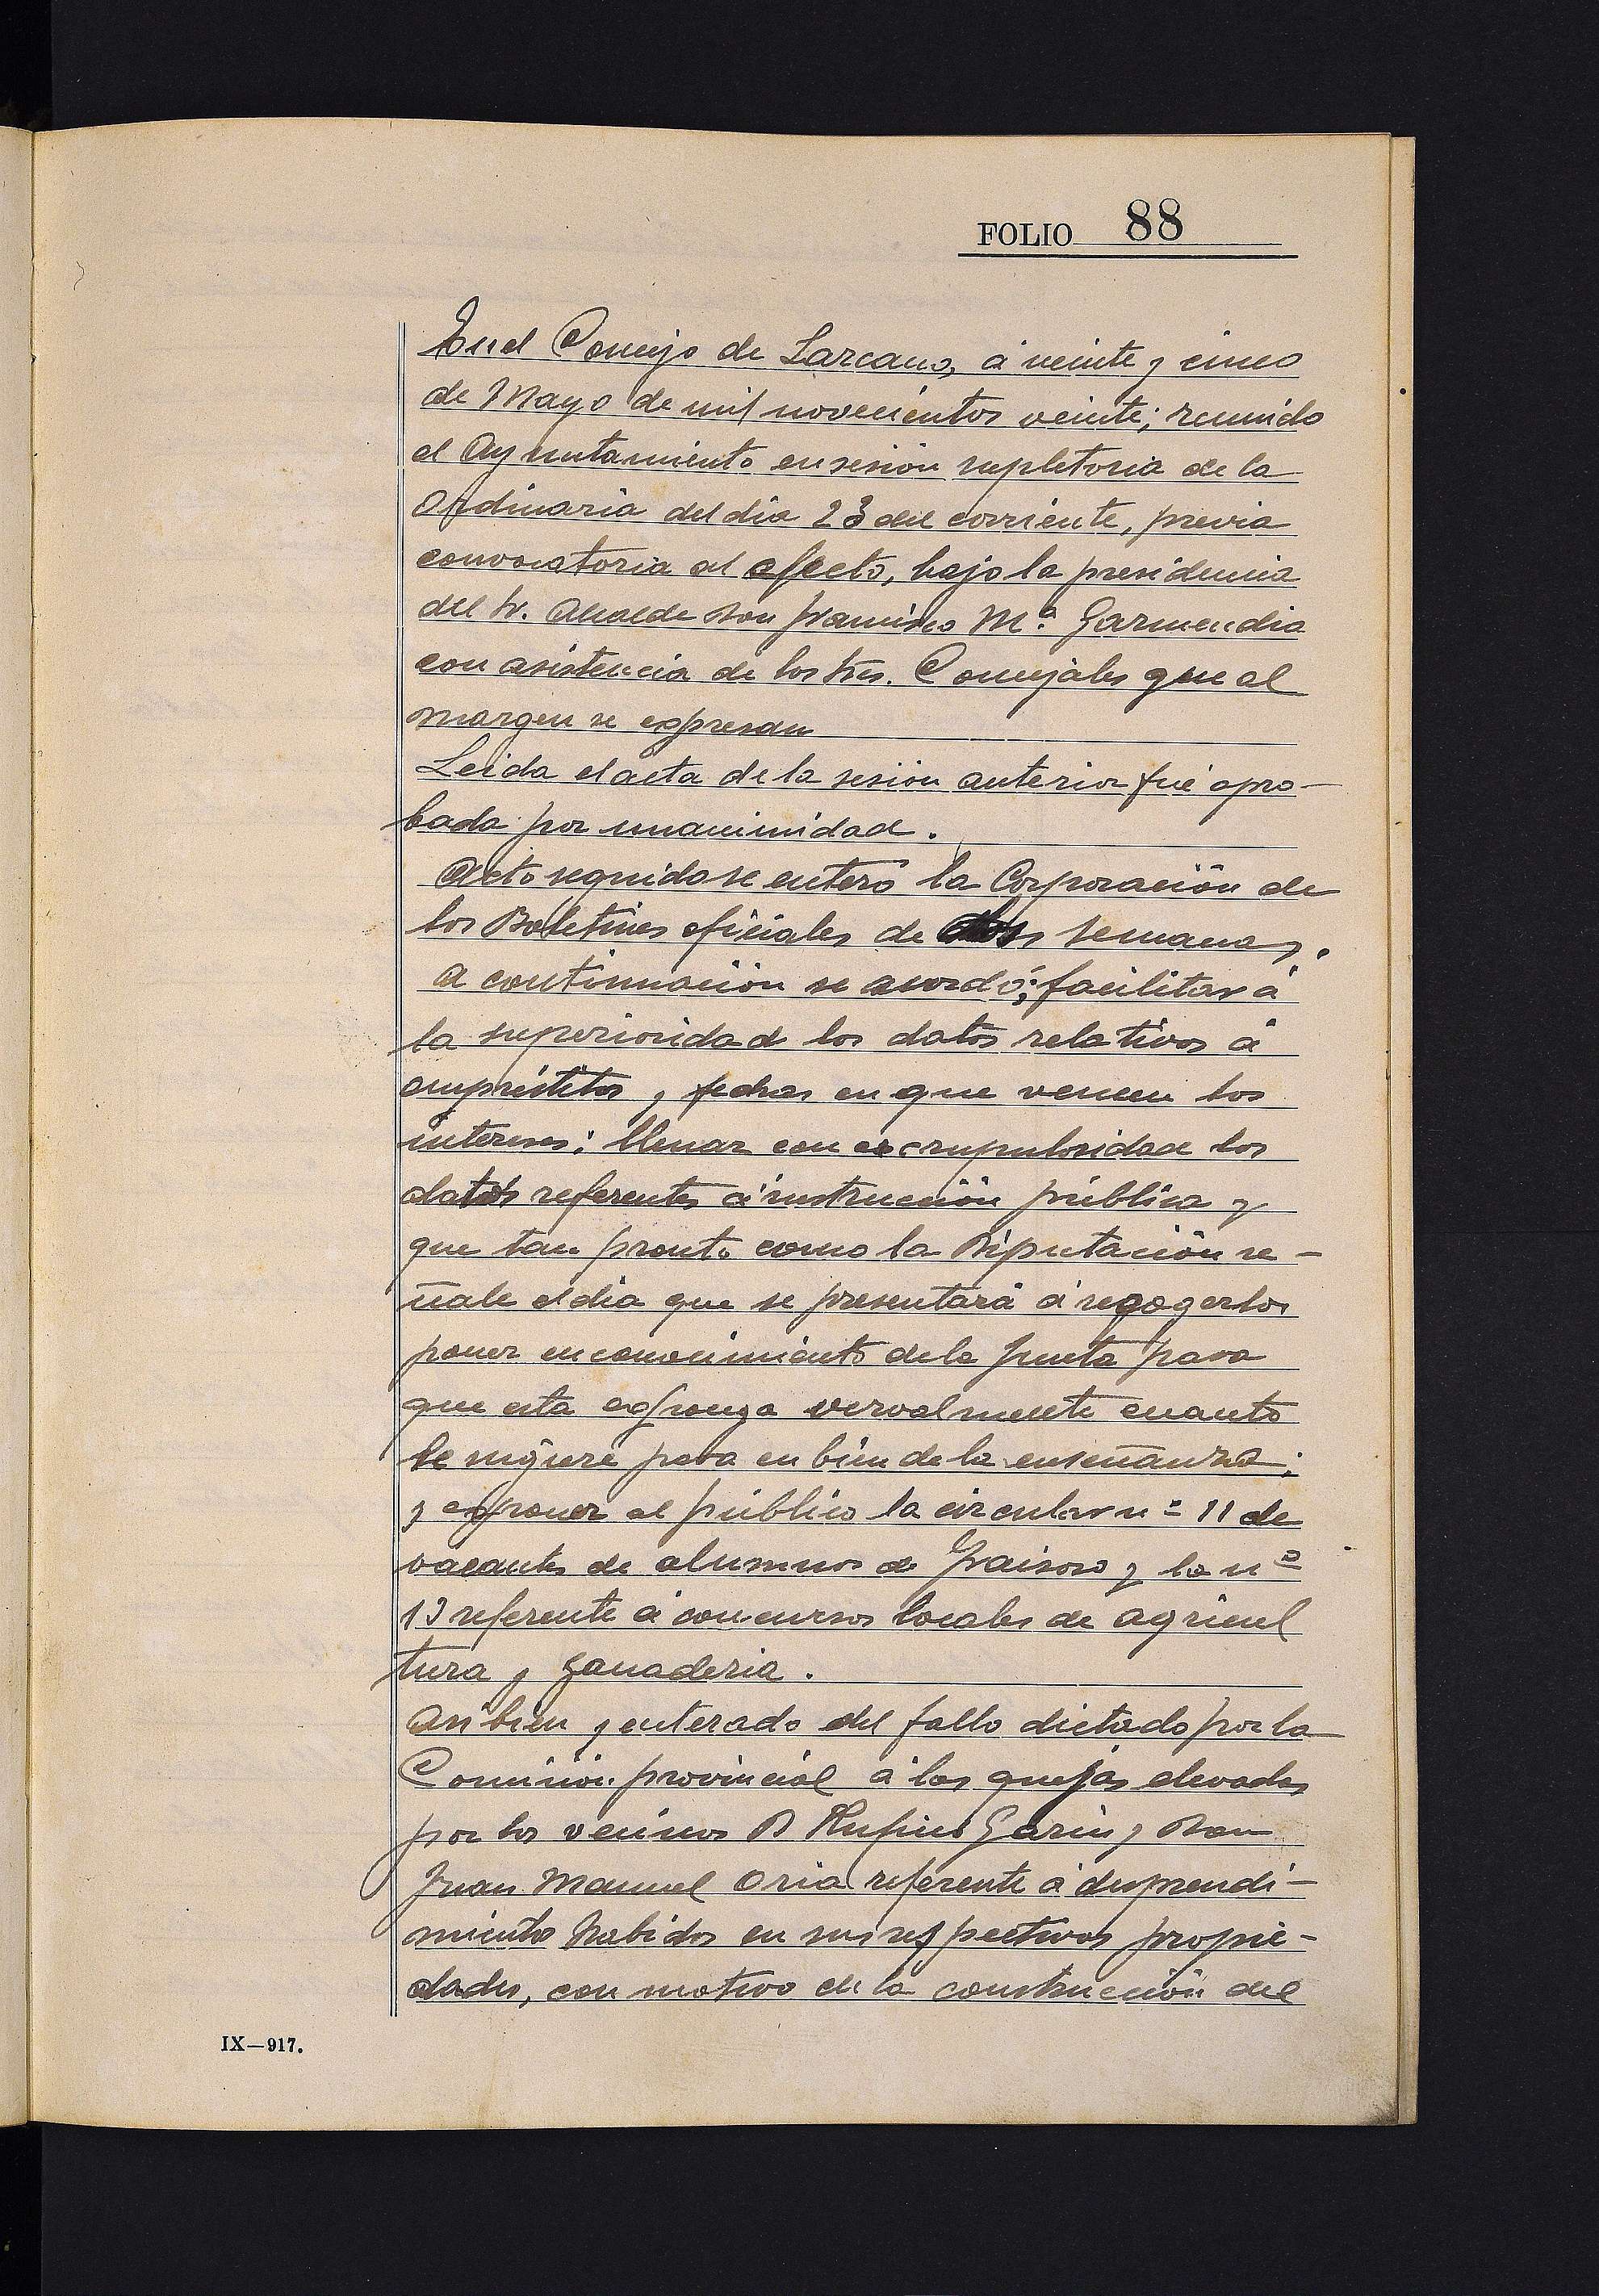 FOLIO 88
En el Concejo de Lazcano, á veinte y cinco
de Mayo de mil novecientos veinte; reunido
el Ayuntamiento en sesión supletoria de la
Ordinaria del dia 23 del corriente, previa
convocatoria al efecto, bajo la presidencia
del Sr. Alcalde Don Francisco Mª. Garmendia
con asistencia de los Sres. Concejales que al
margen se expresan
Leida el acta de la sesión anterior fué apro-
bada por unanimidad.
Acto seguido se enteró la Corporación de
los Boletines oficiales de dos semanas.
A continuación se acordó; facilitar á
la superioridad los datos relativos á
empréstitos y fechas en que vencen los
intereses; llenar con escrupulosidad los
datos referentes á instrucción pública y
que tan pronto como la Diputación se-
ñale el dia que se presentará á recogerlos
poner en conocimiento de la Junta para
que esta exponga vervalmente cuanto
le sugiere para en bien de la enseñanza;
y exponer al público la circular nº 11 de
vacantes de alumnos de Fraisoro y la nº
13 referente á concursos locales de agricul
tura y ganaderia.
Asi bien y enterado del fallo dictado por la
Comisión provincial á las quejas elevadas
por los vecinos D Rufino Garin y Don
Juan Manuel Oria referente á desprendi-
miento habidos en sus respectivas propie-
dades, con motivo de la construcción del
IX—917.